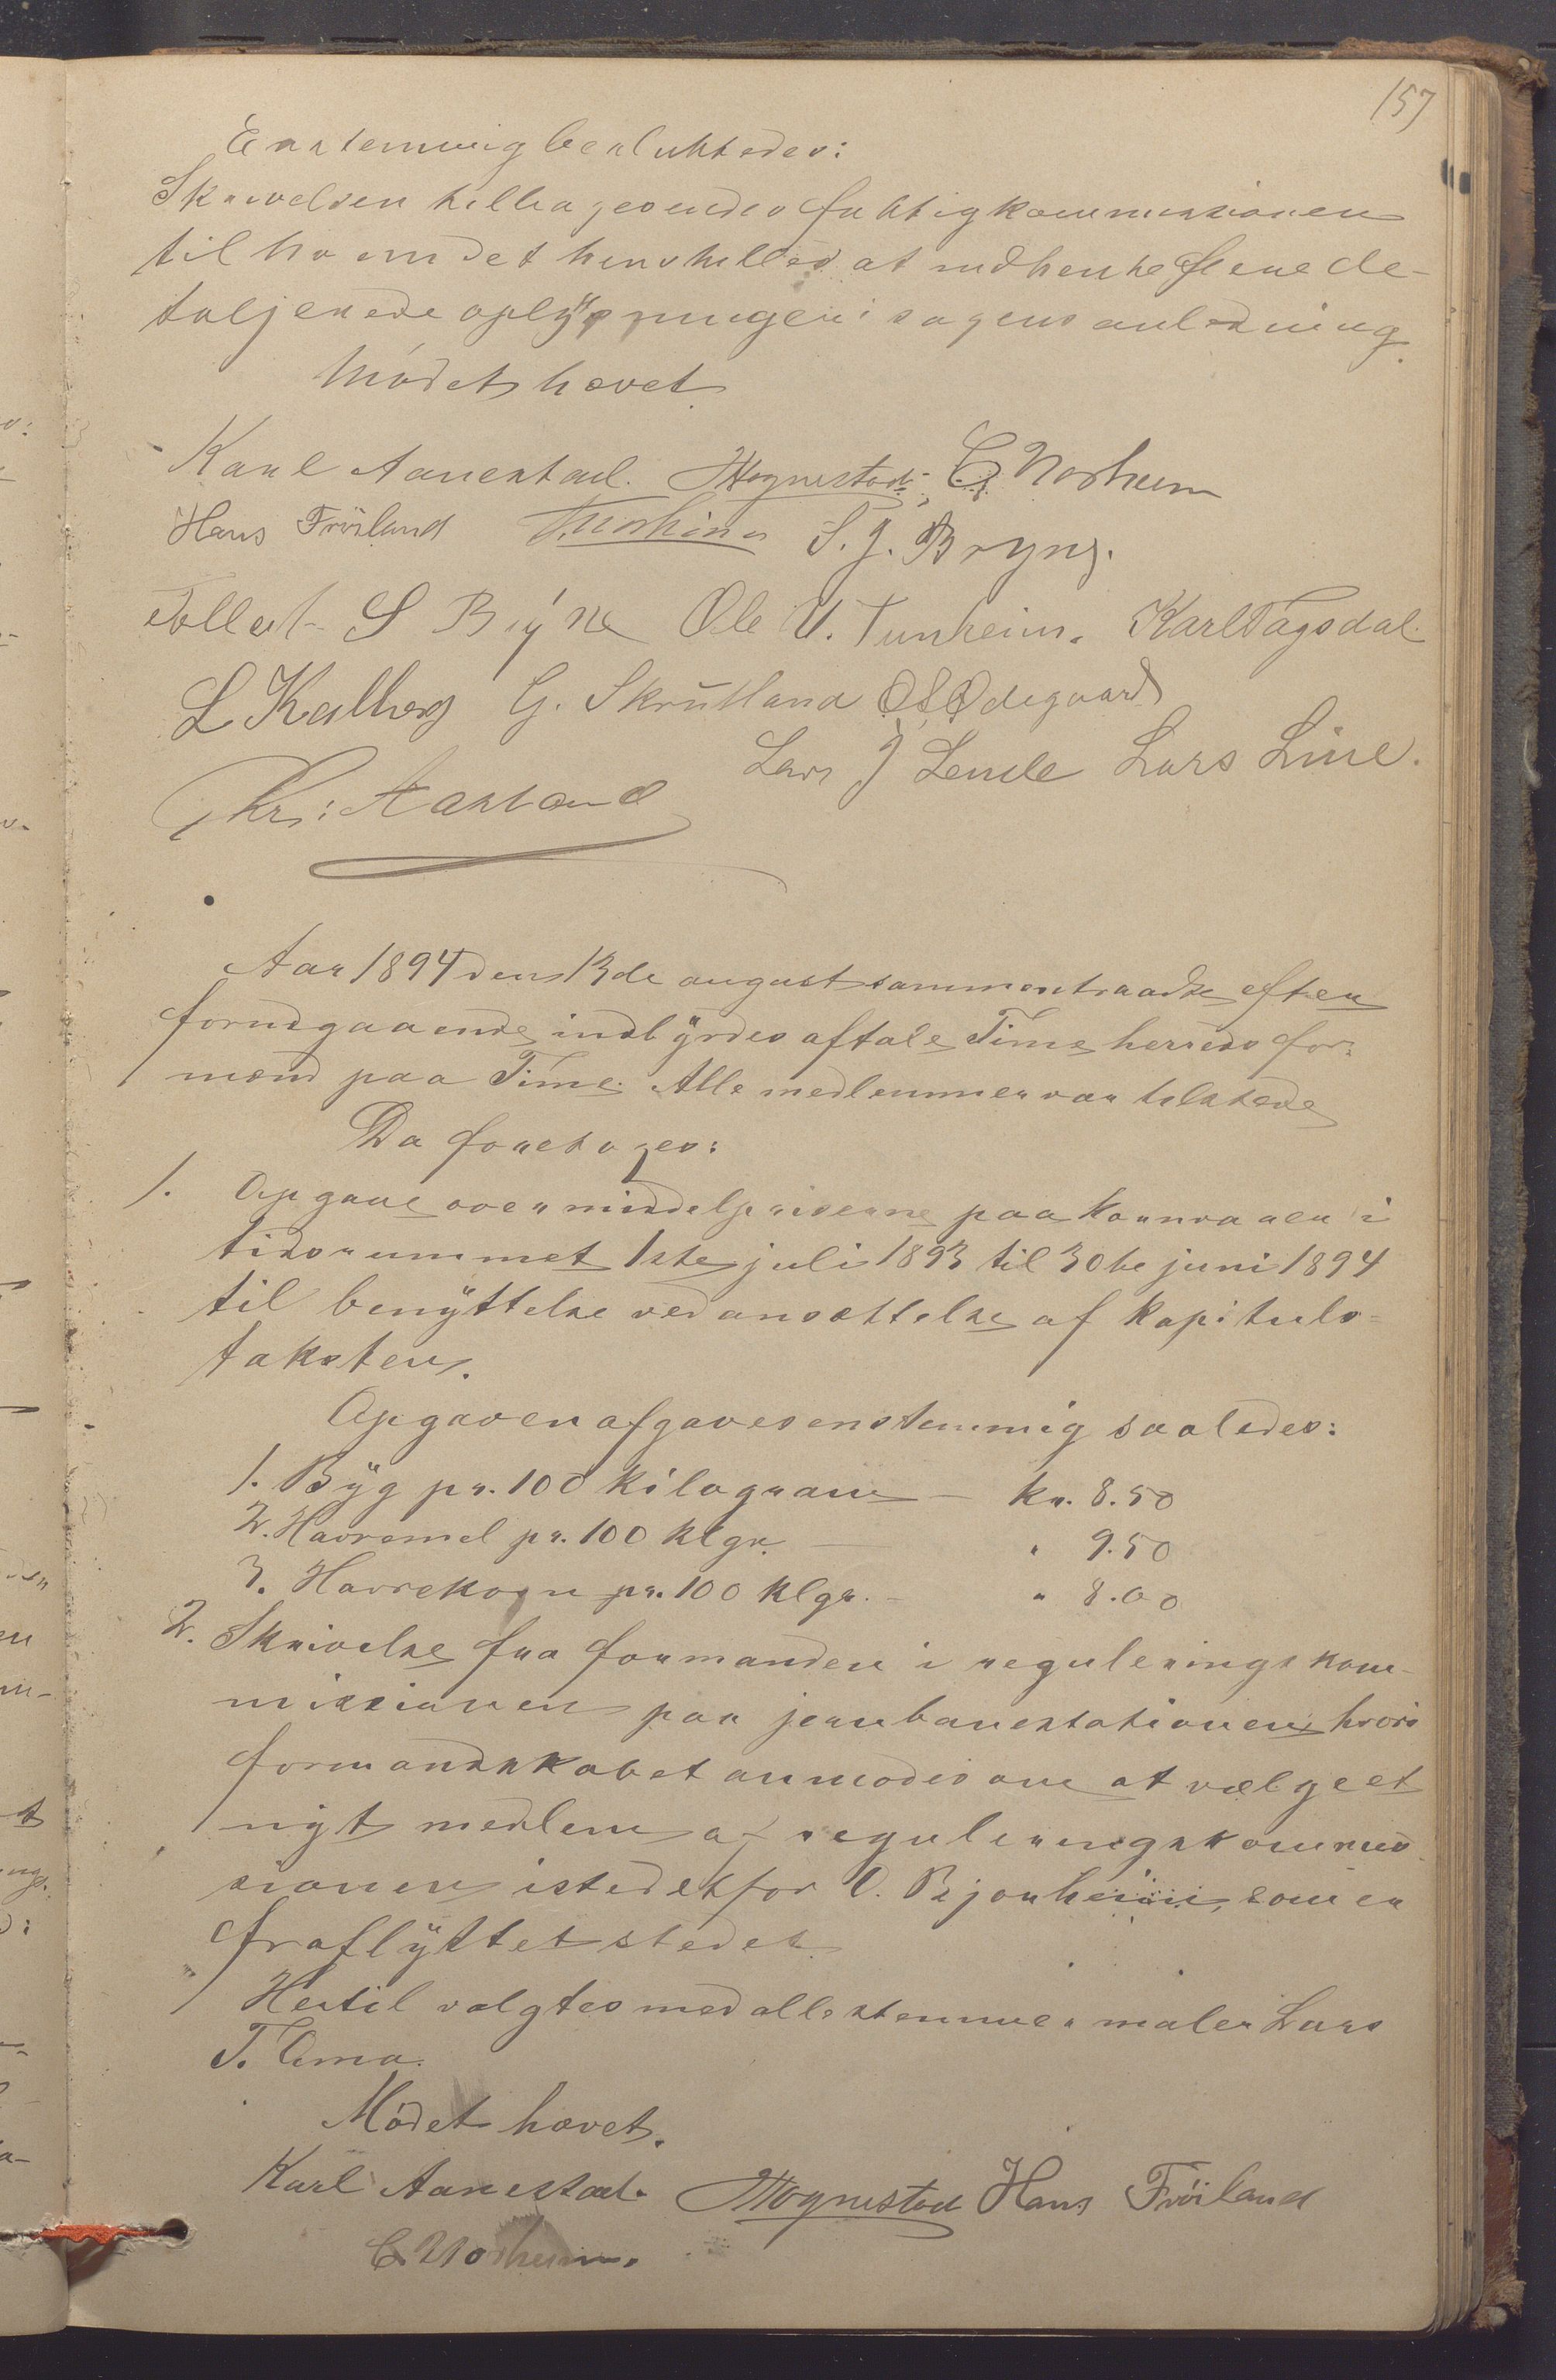 157
Enstemmig besluttedes:
Skrivelsen tilbagesendes fattigkommissionen
til hvem det henstilles at indhente flere de-
taljerede oplysninger i sagens anledning.
Mödet hævet.
Karl Aanestad. Hognestad. C. Norheim
Hans Fröiland S. J. Bryne.
Tollef S Bryne Ole U. Tunheim. Karl Tagsdal.
L Kalberg G. Skrudland O S Ødegaard
Lars J Lende Lars Line.
Chr: Aasland
Aar 1894 den 13de august sammentraadte efter
forudgaaende indbyrdes aftale Time herreds for-
mænd paa Time. Alle medlemmer var tilstede
Da foretoges:
1. Opgave over middelpriserne paa kornvarer i
tidsrummet 1ste juli 1893 til 30te juni 1894
til benyttelse ved ansættelse af kapitels-
taksten.
Opgaven afgaves enstemmig saaledes:
1. Byg pr. 100 kilogram - kr. 8.50
2. Havremel pr. 100 klgr. — " 9.50
3. Havrekorn pr. 100 klgr. - " 8.00
2. Skrivelse fra formanden i reguleringskom-
missionen paa jernbanestationen, hvori
formandskabet anmodes om at vælge et
nyt medlem af reguleringskommis-
sionen istedetfor O. Bjorheim, som er
fraflyttet stedet.
Hertil valgtes med alle stemmer maler Lars
T. Oma.
Mödet hævet.
Karl Aanestad. Hognestad Hans Fröiland
C. Norheim.